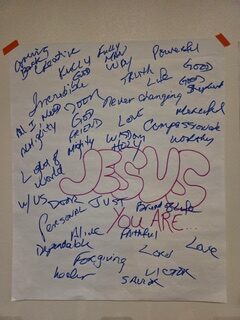 Coming Back
Creative
Fully God
Fully Man
Way
Powerful
Truth
Life
Good
Good Shepherd
Incredible
All I Need
Door
Never Changing
Almighty
God
Friend
Love
Merciful
Compassionate
Light of World
Mighty
Wisdom
Holy
Worthy
JESUS
YOU ARE...
w/ us
Door
Just
Personal
Bread of Life
Alive
Faithful
Dependable
Forgiving
Lord
Love
healer
Victor
Savior